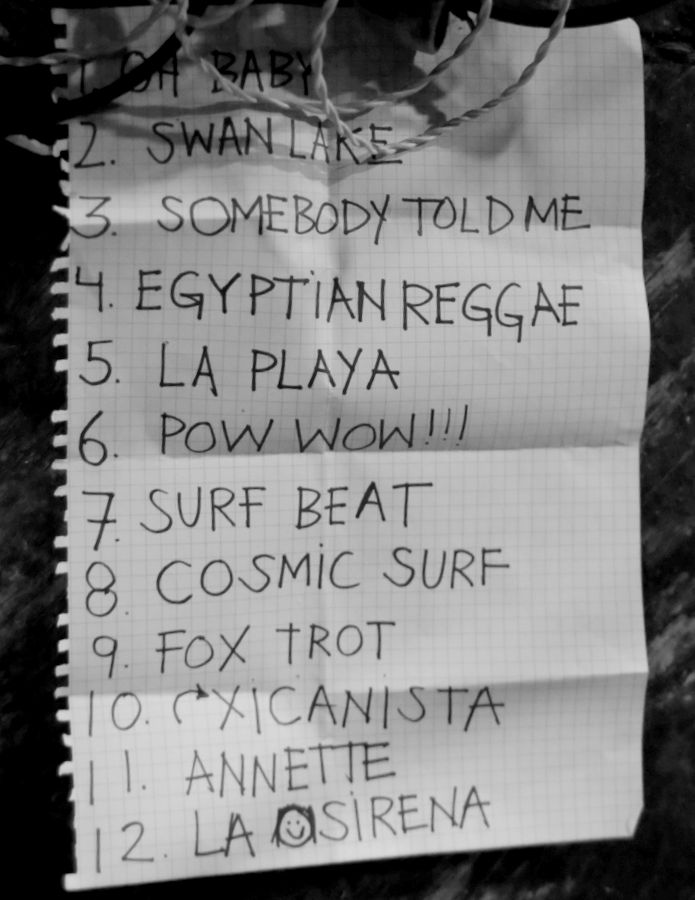 1. OH BABY
2. SWAN LAKE
3. SOMEBODY TOLD ME
4. EGYPTIAN REGGAE
5. LA PLAYA
6. POW WOW!!!
7. SURF BEAT
8. COSMIC SURF
9. FOX TROT
10.
11. ANNETTE
12. LA SIRENA